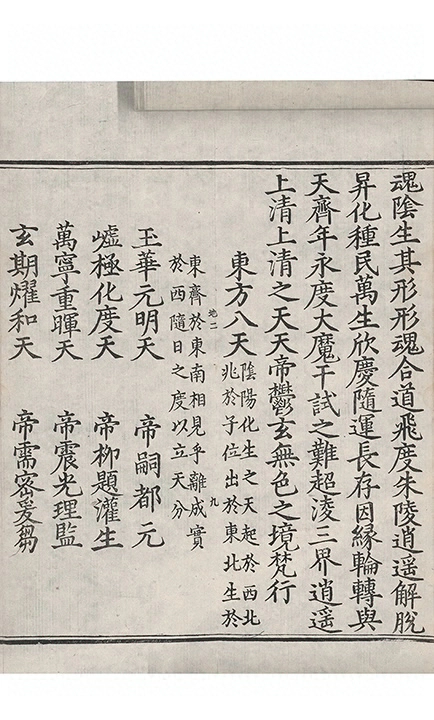 魂陰生其形形魂合道飛度朱陵逍遥解脫
昇化種民萬生欣慶隨運長存因緣輪轉與
天齊年永度大魔干試之難超凌三界逍遥
上清上清之天天帝鬱玄無色之境梵行
東方八天
陰陽化生之天起於西北
兆於子位出於東北生於
九
東齊於東南相見乎離成實
於西隨日之度以立天分
玉華元明天 帝嗣都元
極化度天 帝柳題灌生
萬寧重暉天 帝震光理監
玄期燿和天 帝需密爰蒭